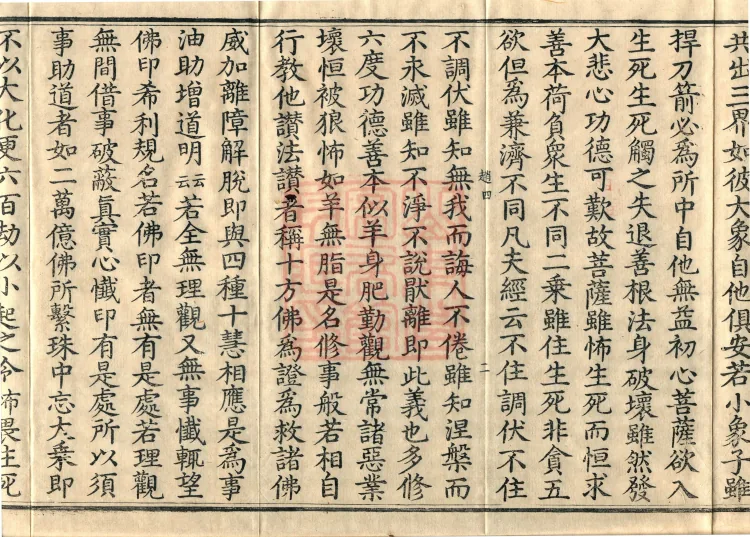 共出三界如彼大象自他俱安若小象子雖
捍刀箭必為所中自他無益初心菩薩欲入
生死生死觸之失退善根法身破壞雖然發
大悲心功德可歎故菩薩雖怖生死而恒求
善本荷負眾生不同二乘雖住生死非貪五
欲但為兼濟不同凡夫經云不住調伏不住
趙四
二
不調伏雖知無我而誨人不倦雖知涅槃而
不永滅雖知不淨不說猒離即此義也多修
六度功德善本似羊身肥勤觀無常諸惡業
壞恒被狼怖如羊無脂是名修事般若相自
行教他讚法讚者稱十方佛為證為救諸佛
威加離障解脫即與四種十慧相應是為事
油助增道明云云若全無理觀又無事懺輒望
佛印希利規名若佛印者無有是處若理觀
無間借事破蔽真實心懺印有是處所以須
事助道者如二萬億佛所繫珠中忘大乘即
不以大化更六百劫以小起之今怖畏生死